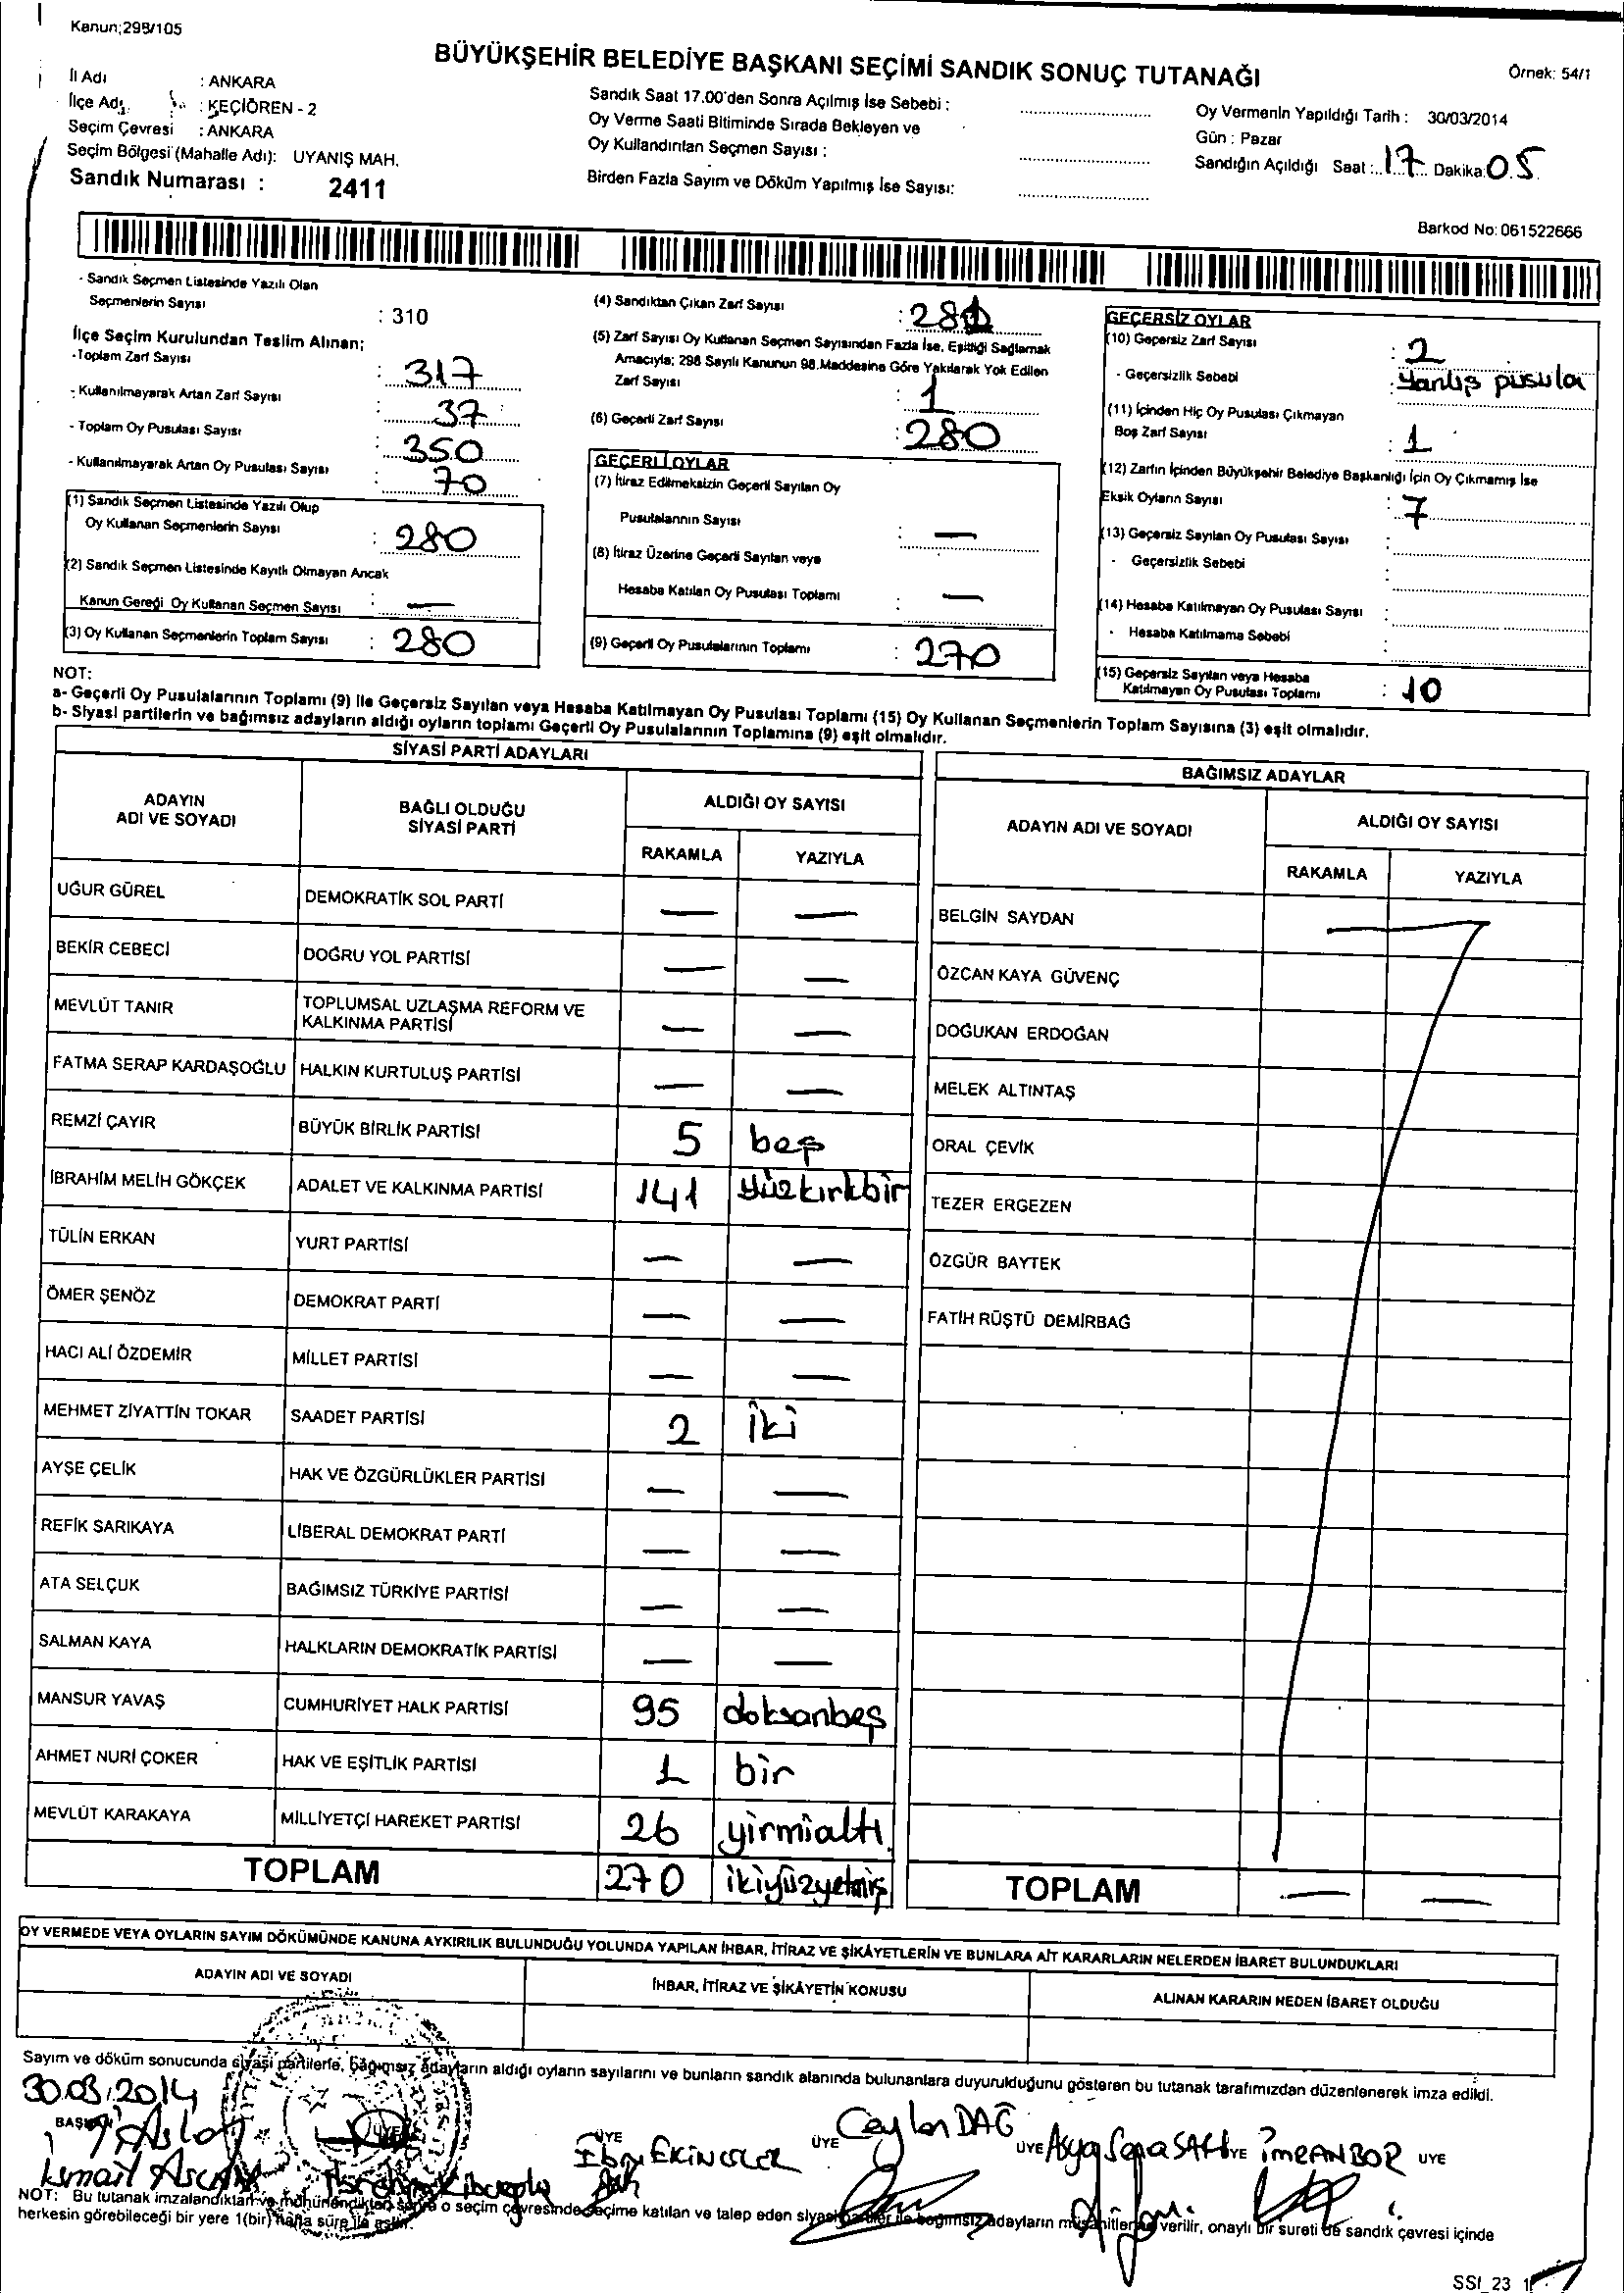 Kanun;298/105
BÜYÜKŞEHİR BELEDİYE BAŞKANI SEÇİMİ SANDIK SONUÇ TUTANAĞI
Örnek: 54/1
İl Adı : ANKARA
İlçe Adı : KEÇİÖREN - 2
Seçim Çevresi : ANKARA
Seçim Bölgesi (Mahalle Adı): UYANIŞ MAH.
Sandık Numarası : 2411
Sandık Saat 17.00'den Sonra Açılmış İse Sebebi :
Oy Verme Saati Bitiminde Sırada Bekleyen ve
Oy Kullandırılan Seçmen Sayısı :
Birden Fazla Sayım ve Döküm Yapılmış İse Sayısı:
Oy Vermenin Yapıldığı Tarih : 30/03/2014
Gün : Pazar
Sandığın Açıldığı Saat : 17 Dakika: 05
Barkod No: 061522666
- Sandık Seçmen Listesinde Yazılı Olan
Seçmenlerin Sayısı : 310
İlçe Seçim Kurulundan Teslim Alınan;
-Toplam Zarf Sayısı : 317
- Kullanılmayarak Artan Zarf Sayısı : 37
- Toplam Oy Pusulası Sayısı : 350
- Kullanılmayarak Artan Oy Pusulası Sayısı : 70
(1) Sandık Seçmen Listesinde Yazılı Olup
Oy Kullanan Seçmenlerin Sayısı : 280
(2) Sandık Seçmen Listesinde Kayıtlı Olmayan Ancak
Kanun Gereği Oy Kullanan Seçmen Sayısı : —
(3) Oy Kullanan Seçmenlerin Toplam Sayısı : 280
(4) Sandıktan Çıkan Zarf Sayısı : 281
(5) Zarf Sayısı Oy Kullanan Seçmen Sayısından Fazla İse, Eşitliği Sağlamak
Amacıyla; 298 Sayılı Kanunun 98.Maddesine Göre Yakılarak Yok Edilen
Zarf Sayısı : 1
(6) Geçerli Zarf Sayısı : 280
GEÇERLİ OYLAR
(7) İtiraz Edilmeksizin Geçerli Sayılan Oy
Pusulalarının Sayısı : —
(8) İtiraz Üzerine Geçerli Sayılan veya
Hesaba Katılan Oy Pusulası Toplamı : —
(9) Geçerli Oy Pusulalarının Toplamı : 270
GEÇERSİZ OYLAR
(10) Geçersiz Zarf Sayısı : 2
- Geçersizlik Sebebi : Yanlış pusula
(11) İçinden Hiç Oy Pusulası Çıkmayan
Boş Zarf Sayısı : 1
(12) Zarfın İçinden Büyükşehir Belediye Başkanlığı İçin Oy Çıkmamış İse
Eksik Oyların Sayısı : 7
(13) Geçersiz Sayılan Oy Pusulası Sayısı :
- Geçersizlik Sebebi :
(14) Hesaba Katılmayan Oy Pusulası Sayısı :
- Hesaba Katılmama Sebebi :
(15) Geçersiz Sayılan veya Hesaba
Katılmayan Oy Pusulası Toplamı : 10
NOT:
a- Geçerli Oy Pusulalarının Toplamı (9) ile Geçersiz Sayılan veya Hesaba Katılmayan Oy Pusulası Toplamı (15) Oy Kullanan Seçmenlerin Toplam Sayısına (3) eşit olmalıdır.
b- Siyasi partilerin ve bağımsız adayların aldığı oyların toplamı Geçerli Oy Pusulalarının Toplamına (9) eşit olmalıdır.
SİYASİ PARTİ ADAYLARI
ADAYIN ADI VE SOYADI BAĞLI OLDUĞU SİYASİ PARTİ ALDIĞI OY SAYISI
RAKAMLA YAZIYLA
UĞUR GÜREL DEMOKRATİK SOL PARTİ — —
BEKİR CEBECİ DOĞRU YOL PARTİSİ — —
MEVLÜT TANIR TOPLUMSAL UZLAŞMA REFORM VE KALKINMA PARTİSİ — —
FATMA SERAP KARDAŞOĞLU HALKIN KURTULUŞ PARTİSİ — —
REMZİ ÇAYIR BÜYÜK BİRLİK PARTİSİ 5 beş
İBRAHİM MELİH GÖKÇEK ADALET VE KALKINMA PARTİSİ 141 yüzkırkbir
TÜLİN ERKAN YURT PARTİSİ — —
ÖMER ŞENÖZ DEMOKRAT PARTİ — —
HACI ALİ ÖZDEMİR MİLLET PARTİSİ — —
MEHMET ZİYATTİN TOKAR SAADET PARTİSİ 2 iki
AYŞE ÇELİK HAK VE ÖZGÜRLÜKLER PARTİSİ — —
REFİK SARIKAYA LİBERAL DEMOKRAT PARTİ — —
ATA SELÇUK BAĞIMSIZ TÜRKİYE PARTİSİ — —
SALMAN KAYA HALKLARIN DEMOKRATİK PARTİSİ — —
MANSUR YAVAŞ CUMHURİYET HALK PARTİSİ 95 doksanbeş
AHMET NURİ ÇOKER HAK VE EŞİTLİK PARTİSİ 1 bir
MEVLÜT KARAKAYA MİLLİYETÇİ HAREKET PARTİSİ 26 yirmialtı
TOPLAM 270 ikiyüzyetmiş
BAĞIMSIZ ADAYLAR
ADAYIN ADI VE SOYADI ALDIĞI OY SAYISI
RAKAMLA YAZIYLA
BELGİN SAYDAN —
ÖZCAN KAYA GÜVENÇ
DOĞUKAN ERDOĞAN
MELEK ALTINTAŞ
ORAL ÇEVİK
TEZER ERGEZEN
ÖZGÜR BAYTEK
FATİH RÜŞTÜ DEMİRBAĞ
TOPLAM — —
OY VERMEDE VEYA OYLARIN SAYIM DÖKÜMÜNDE KANUNA AYKIRILIK BULUNDUĞU YOLUNDA YAPILAN İHBAR, İTİRAZ VE ŞİKÂYETLERİN VE BUNLARA AİT KARARLARIN NELERDEN İBARET BULUNDUKLARI
ADAYIN ADI VE SOYADI İHBAR, İTİRAZ VE ŞİKÂYETİN KONUSU ALINAN KARARIN NEDEN İBARET OLDUĞU
Sayım ve döküm sonucunda siyasi partilerle, bağımsız adayların aldığı oyların sayılarını ve bunların sandık alanında bulunanlara duyurulduğunu gösteren bu tutanak tarafımızdan düzenlenerek imza edildi.
30.03.2014
BAŞKAN ÜYE ÜYE ÜYE ÜYE ÜYE ÜYE
İsmail Ebru EKİNCİLER Ceylan DAĞ Asya İmran BOR
NOT: Bu tutanak imzalandıktan ve mühürlendikten sonra o seçim çevresinde seçime katılan ve talep eden siyasi partiler ile bağımsız adayların müşahitlerine verilir, onaylı bir sureti de sandık çevresi içinde
herkesin görebileceği bir yere 1(bir) hafta süre ile asılır.
SSI_23 1